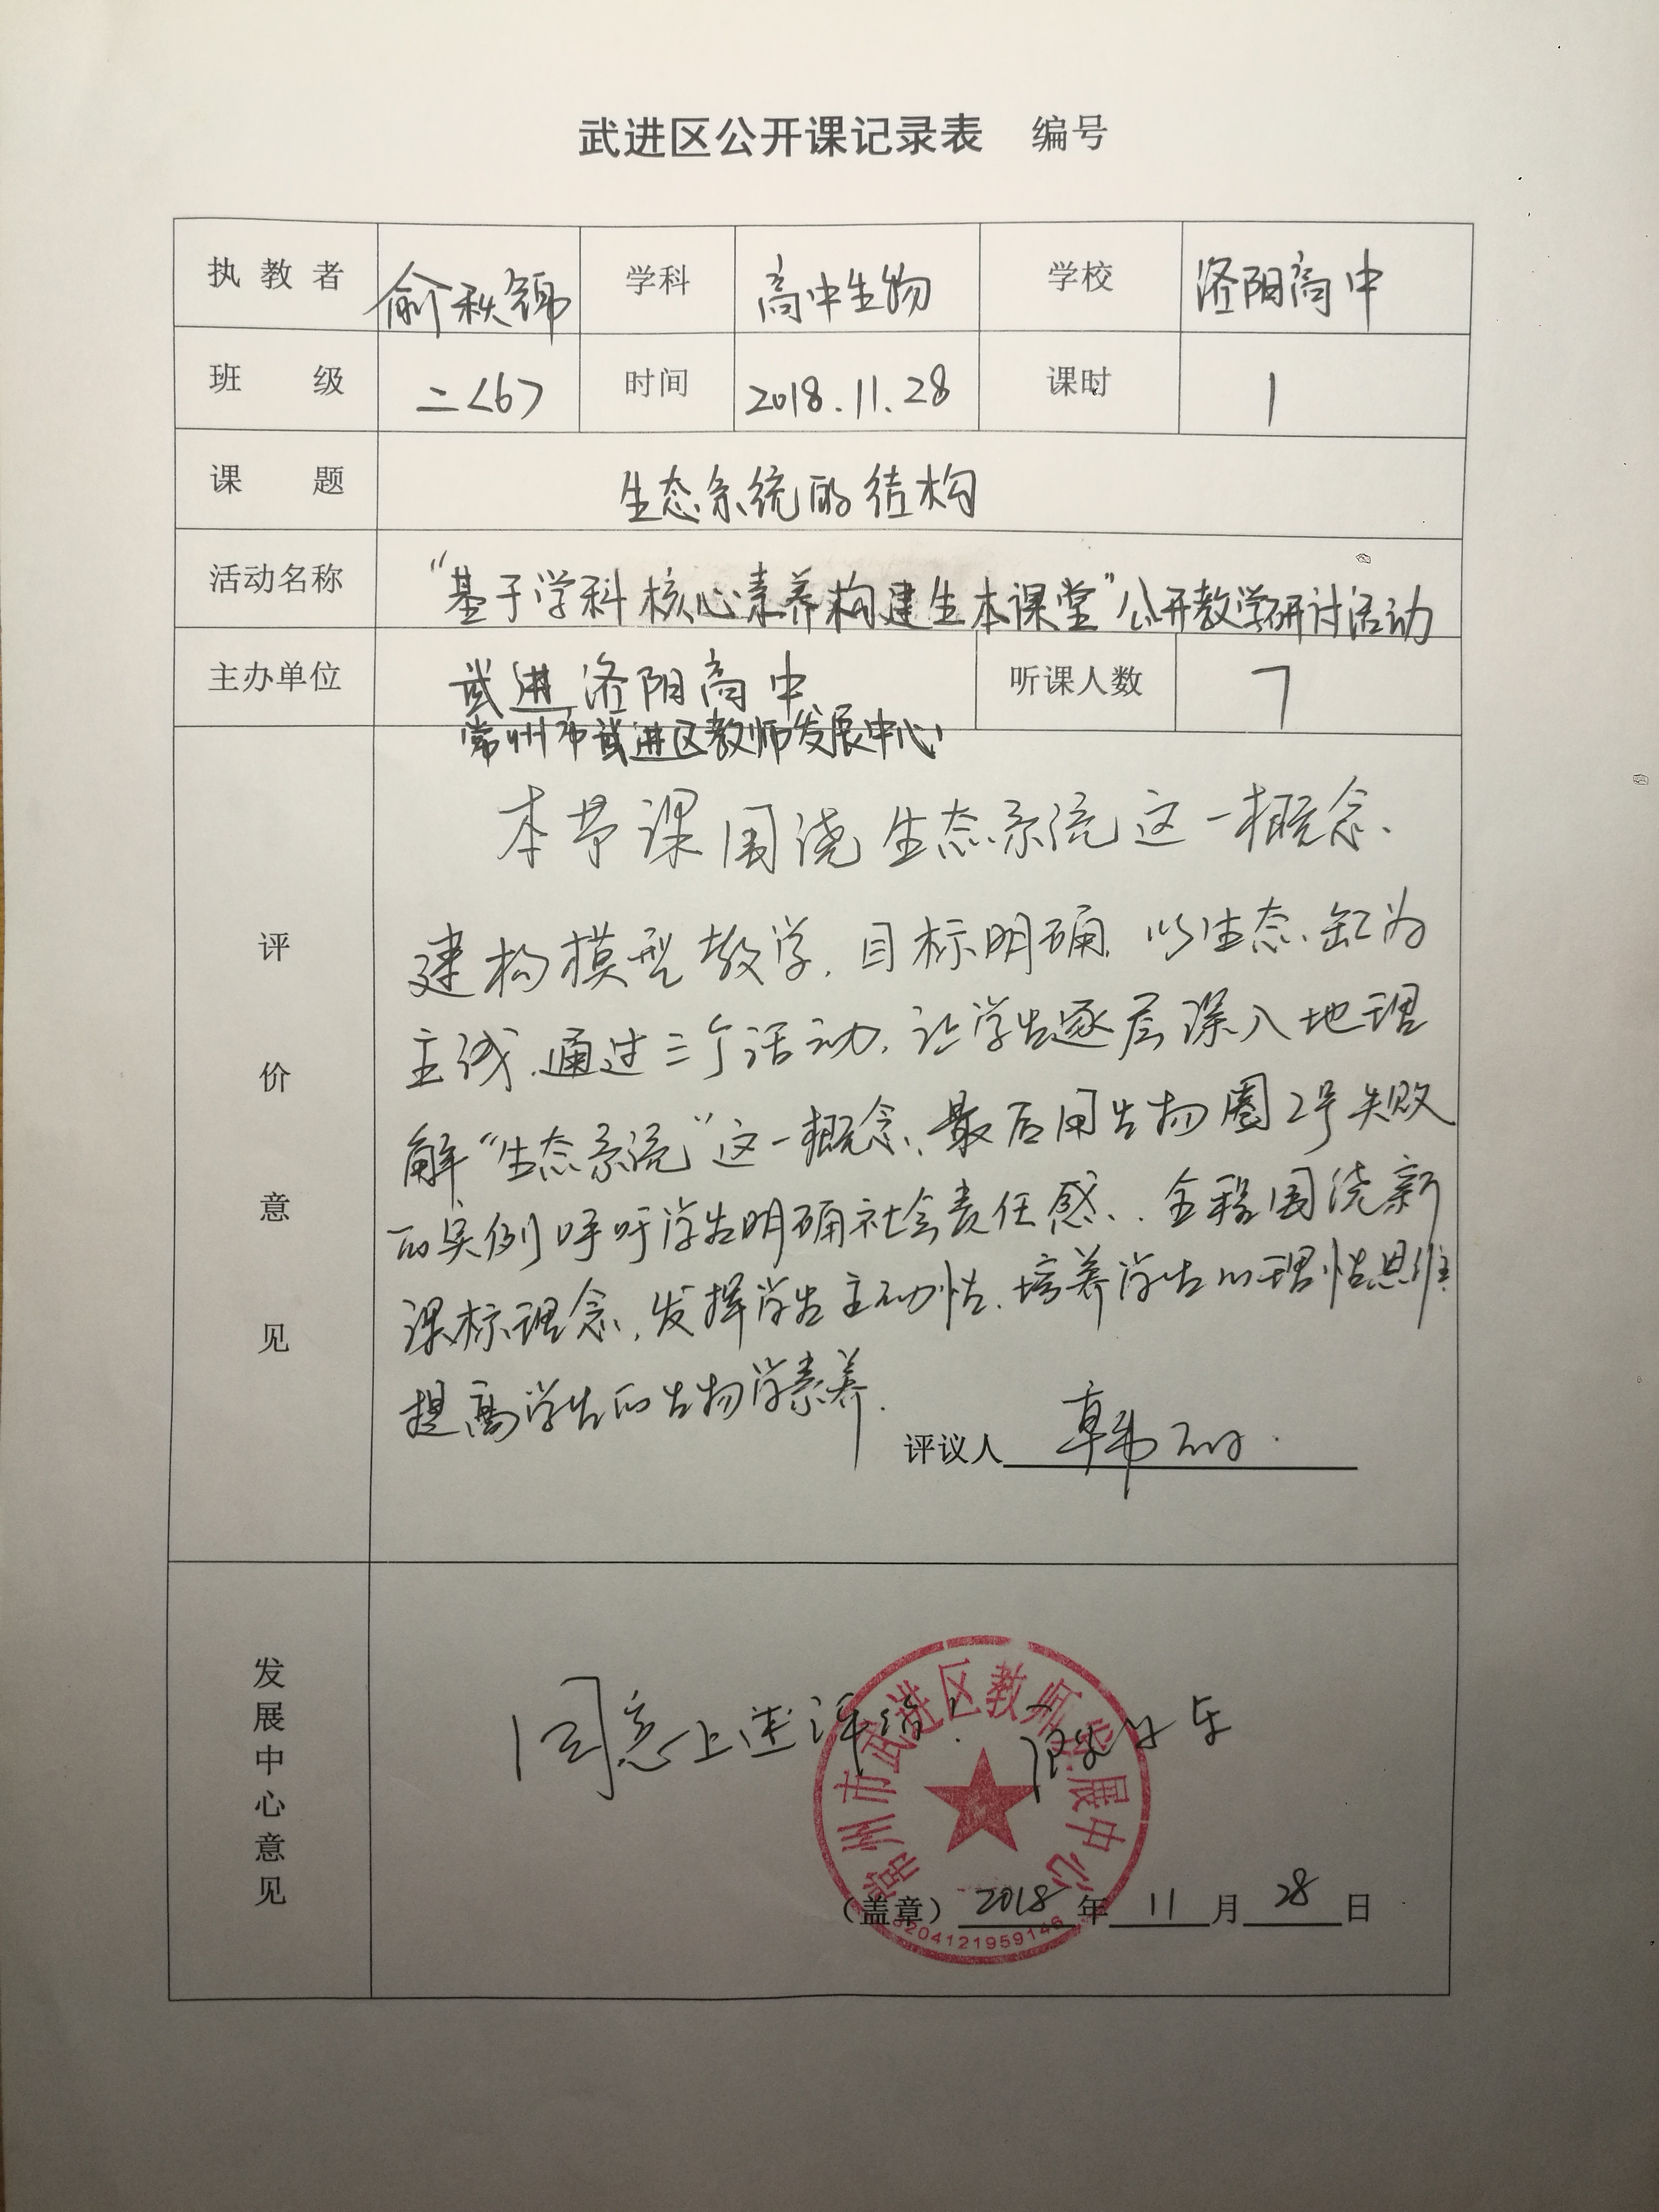 武进区公开课记录表 编号
执教者 俞秋锦 学科 高中生物 学校 洛阳高中
班级 二<6> 时间 2018.11.28 课时 1
课题 生态系统的结构
活动名称 “基于学科核心素养构建生本课堂”公开教学研讨活动
主办单位 武进洛阳高中 听课人数 7
常州市武进区教师发展中心
评价意见
本节课围绕生态系统这一概念、
建构模型教学,目标明确.以生态缸为
主线.通过三个活动,让学生逐层深入地理
解“生态系统”这一概念、最后用生物圈2号失败
的实例呼吁学生明确社会责任感、.全程围绕新
课标理念,发挥学生主动性.培养学生的理性思维
提高学生的生物学素养.
评议人 韩
发展中心意见
同意上述评语!
常州市武进区教师发展中心
(盖章) 2018 年 11 月 28 日
3204121959146